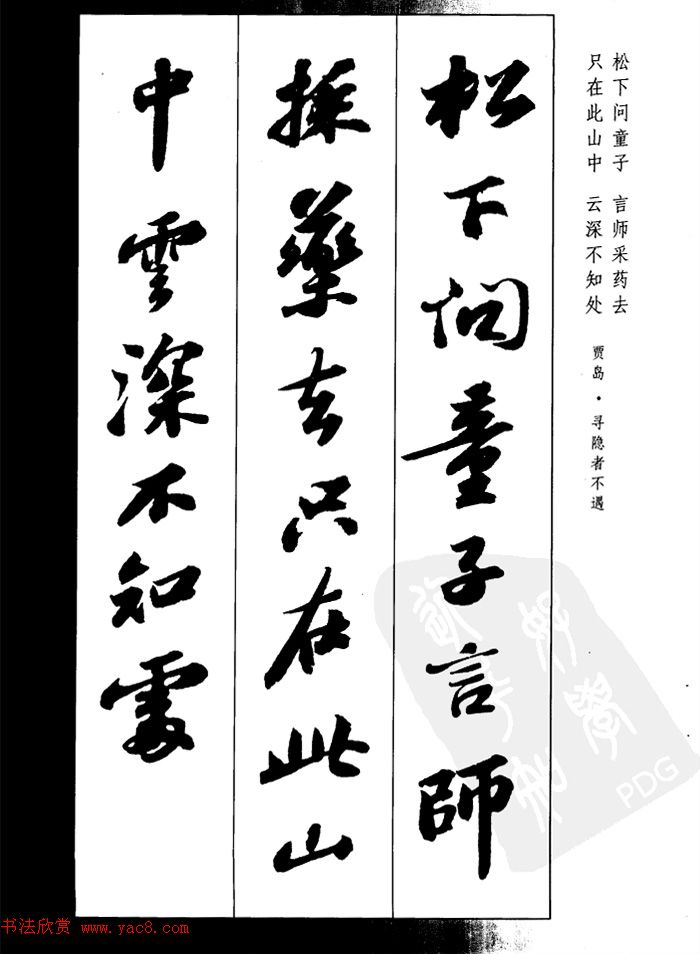 松下问童子　言师采药去
只在此山中　云深不知处
贾岛·寻隐者不遇
松下问童子言師
採藥去只在此山
中雲深不知處
PDG
书法欣赏 www.yac8.com